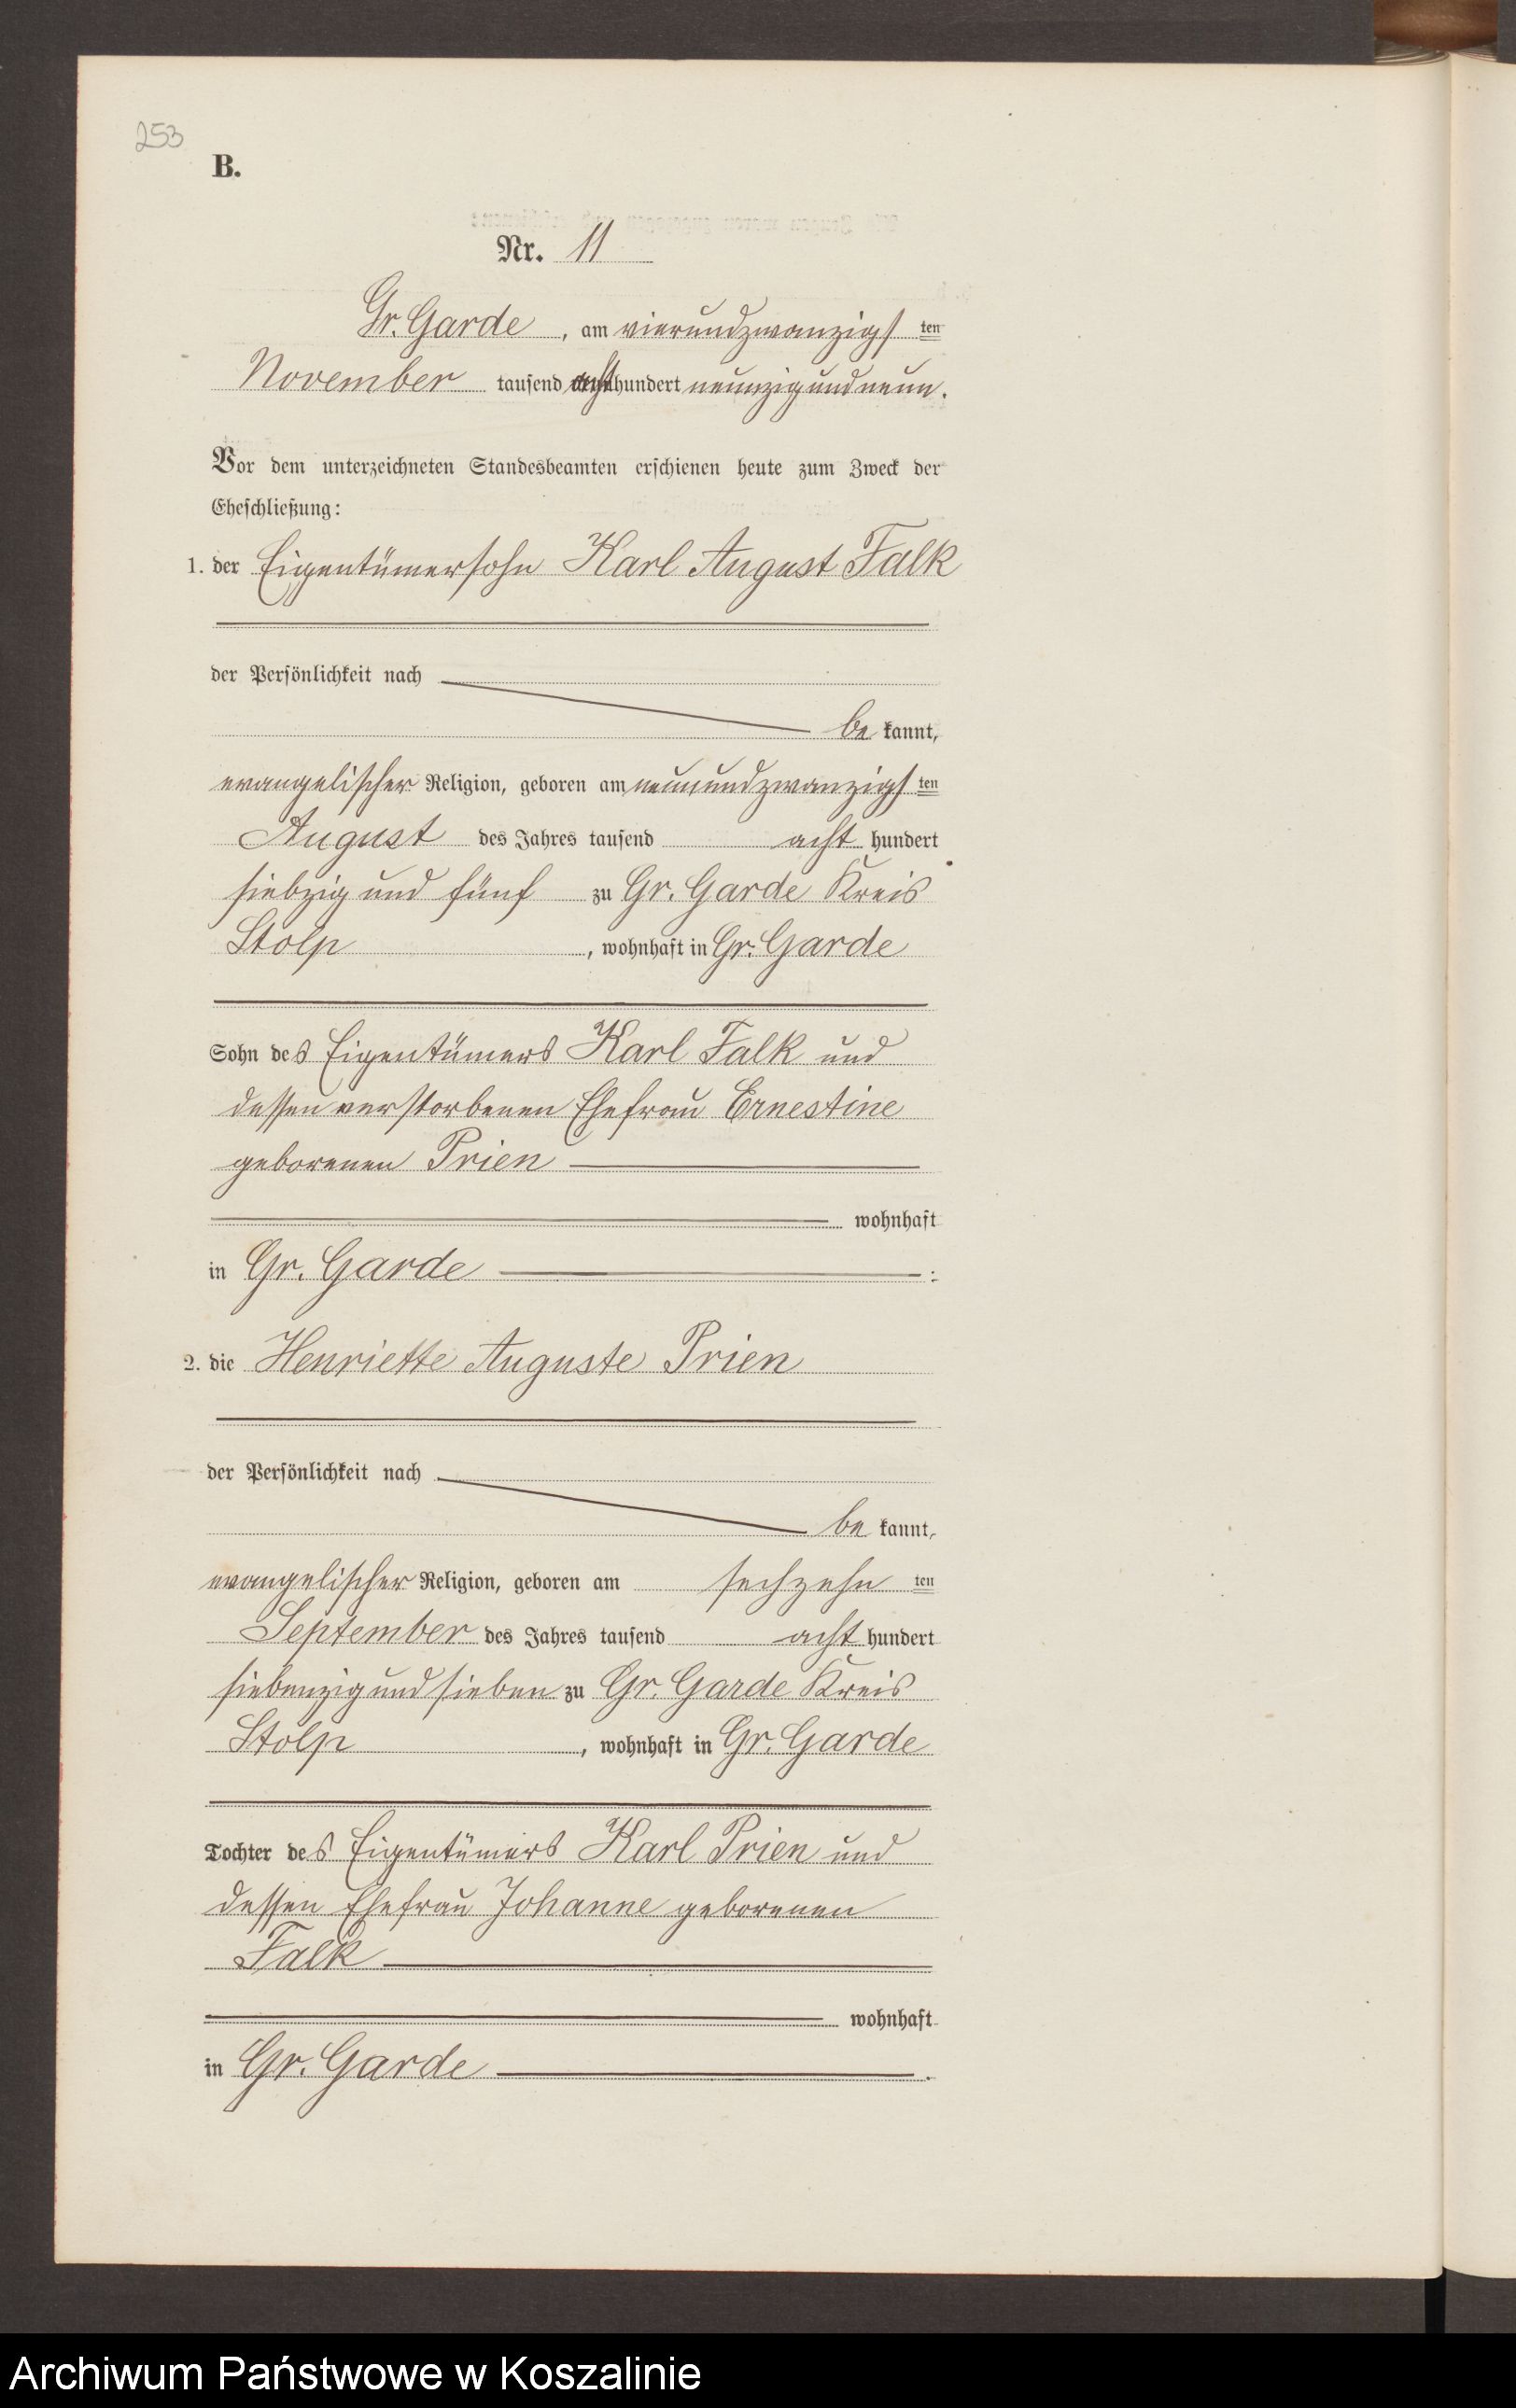 253
B.
Nr. 11
Gr. Garde, am vierundzwanzigsten
November tausend achthundert neunzig und neun.
Vor dem unterzeichneten Standesbeamten erschienen heute zum Zweck der
Eheschließung:
1. der Eigentümersohn Karl August Falk
der Persönlichkeit nach
be kannt,
evangelischer Religion, geboren am neunundzwanzigsten
August des Jahres tausend acht hundert
siebzig und fünf zu Gr. Garde Kreis
Stolp, wohnhaft in Gr. Garde
Sohn des Eigentümers Karl Falk und
dessen verstorbenen Ehefrau Ernestine
geborenen Prien
wohnhaft
in Gr. Garde :
2. die Henriette Auguste Prien
der Persönlichkeit nach
be kannt,
evangelischer Religion, geboren am sechzehn ten
September des Jahres tausend acht hundert
siebenzig und sieben zu Gr. Garde Kreis
Stolp, wohnhaft in Gr. Garde
Tochter des Eigentümers Karl Prien und
dessen Ehefrau Johanne geborenen
Falk
wohnhaft
in Gr. Garde .
Archiwum Państwowe w Koszalinie